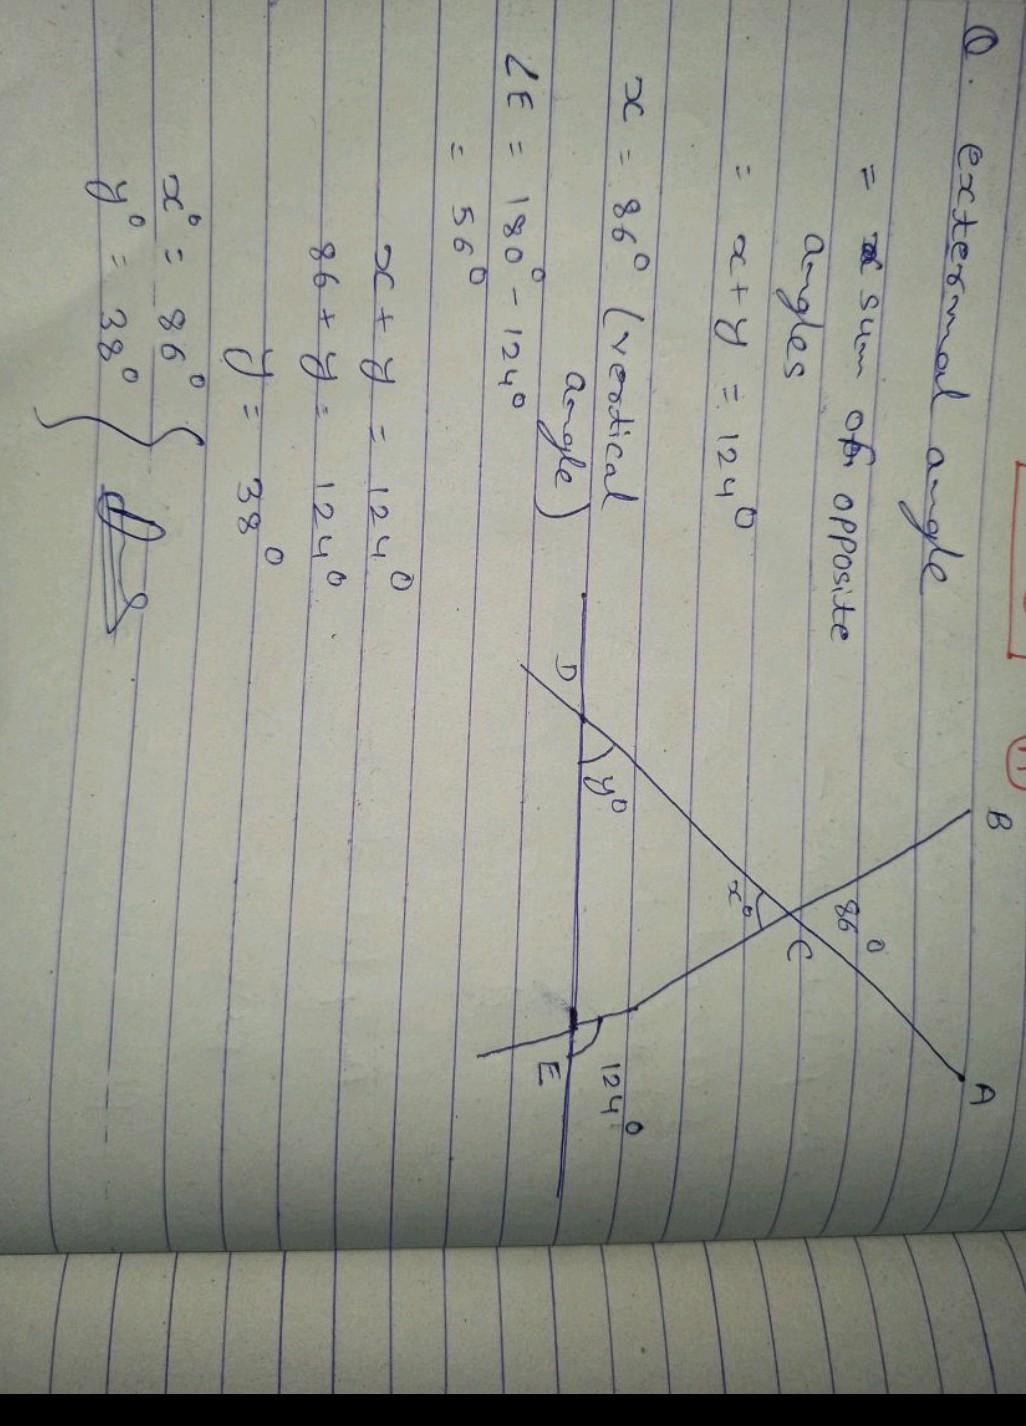 Q. external angle
= sum of opposite
angles
= x+y = 124°
x = 86° (vertical
angle)
∠E = 180° - 124°
= 56°
x+y = 124°
86+y = 124°
y = 38°
x° = 86°
y° = 38°
B
A
86°
C
x°
D
y°
124°
E